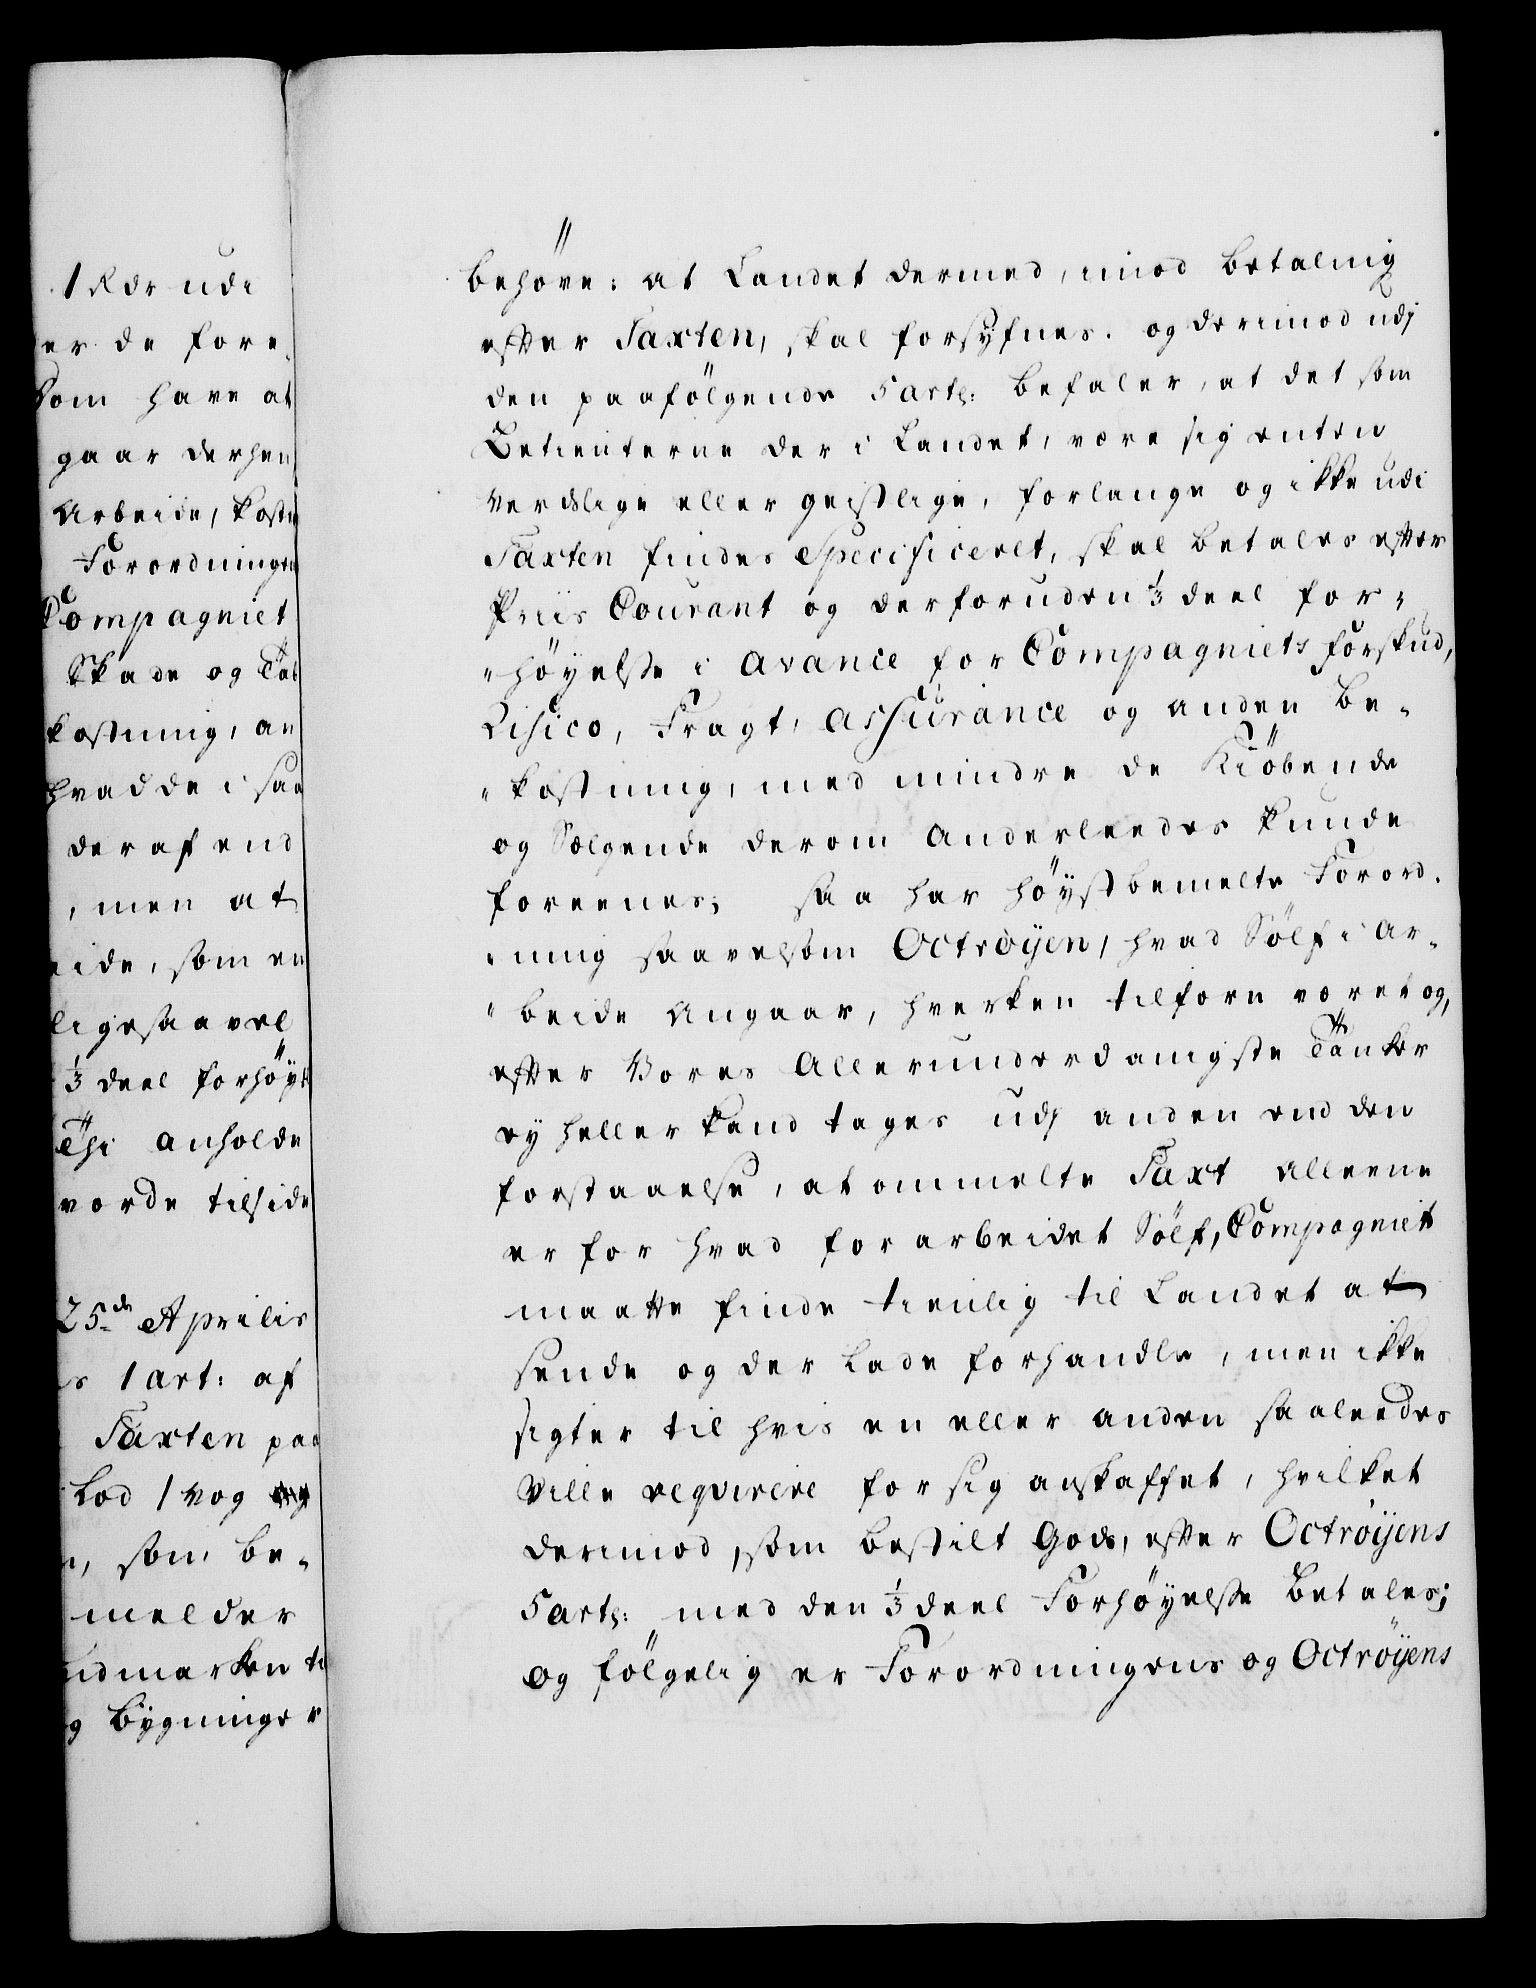 1 Rdr udi
er de fore
som have at
gaar derhen
Arbeide, kostn
Forordningen
Compagniet
Skade og Tab
kostning, an
hvad de i saa
deraf end
, men at
eide, som en
ligesaavel
1/3 deel forhöyt
Thi anholde
vorde tilside
25de Aprilis
s 1 Art: af
Taxten paa
Lod 1 vog
n, som be-
melder
ndmarken ti
g Bygninger
behöve: at Landet dermed, imod betaling
efter Taxten, skal forsyfnes. og derimod udj
den paafölgende 5 artl: befaler, at det som
Betienterne der i Landet, være sig enten
Verdslige eller geistlige, forlange og ikke udi
Taxten findes Specificeret, skal betales efter
Priis Courant og derforuden 1/3 deel for-
"höyelse i Avance for Compagniets forskud,
Risico, Fragt, Assurance og anden be-
"kostning, med mindre de Kiöbende
og Sælgende derom anderleedes kunde
foreenes; saa har höystbemelte Forord-
"ning saavelsom Octroÿen, hvad Sölf i Ar-
"beide Angaar, hverken tilforn været og,
efter Vores Allerunderdanigste Tanker
ey heller kand tages udj anden end den
forstaaelse, at ommelte Taxt alleene
er for hvad forarbeidet Sölf, Compagniet
maatte finde tienlig til Landet at
sende og der lade forhandle, men ikke
sigter til hvis en eller anden saaleedes
Ville reqvirere for sig anskaffet, hvilket
derimod, som bestilt Gods, efter Octroÿens
5 artl: med den 1/3 deel Forhöyelse betales;
og fölgelig er Forordningens og Octroÿens